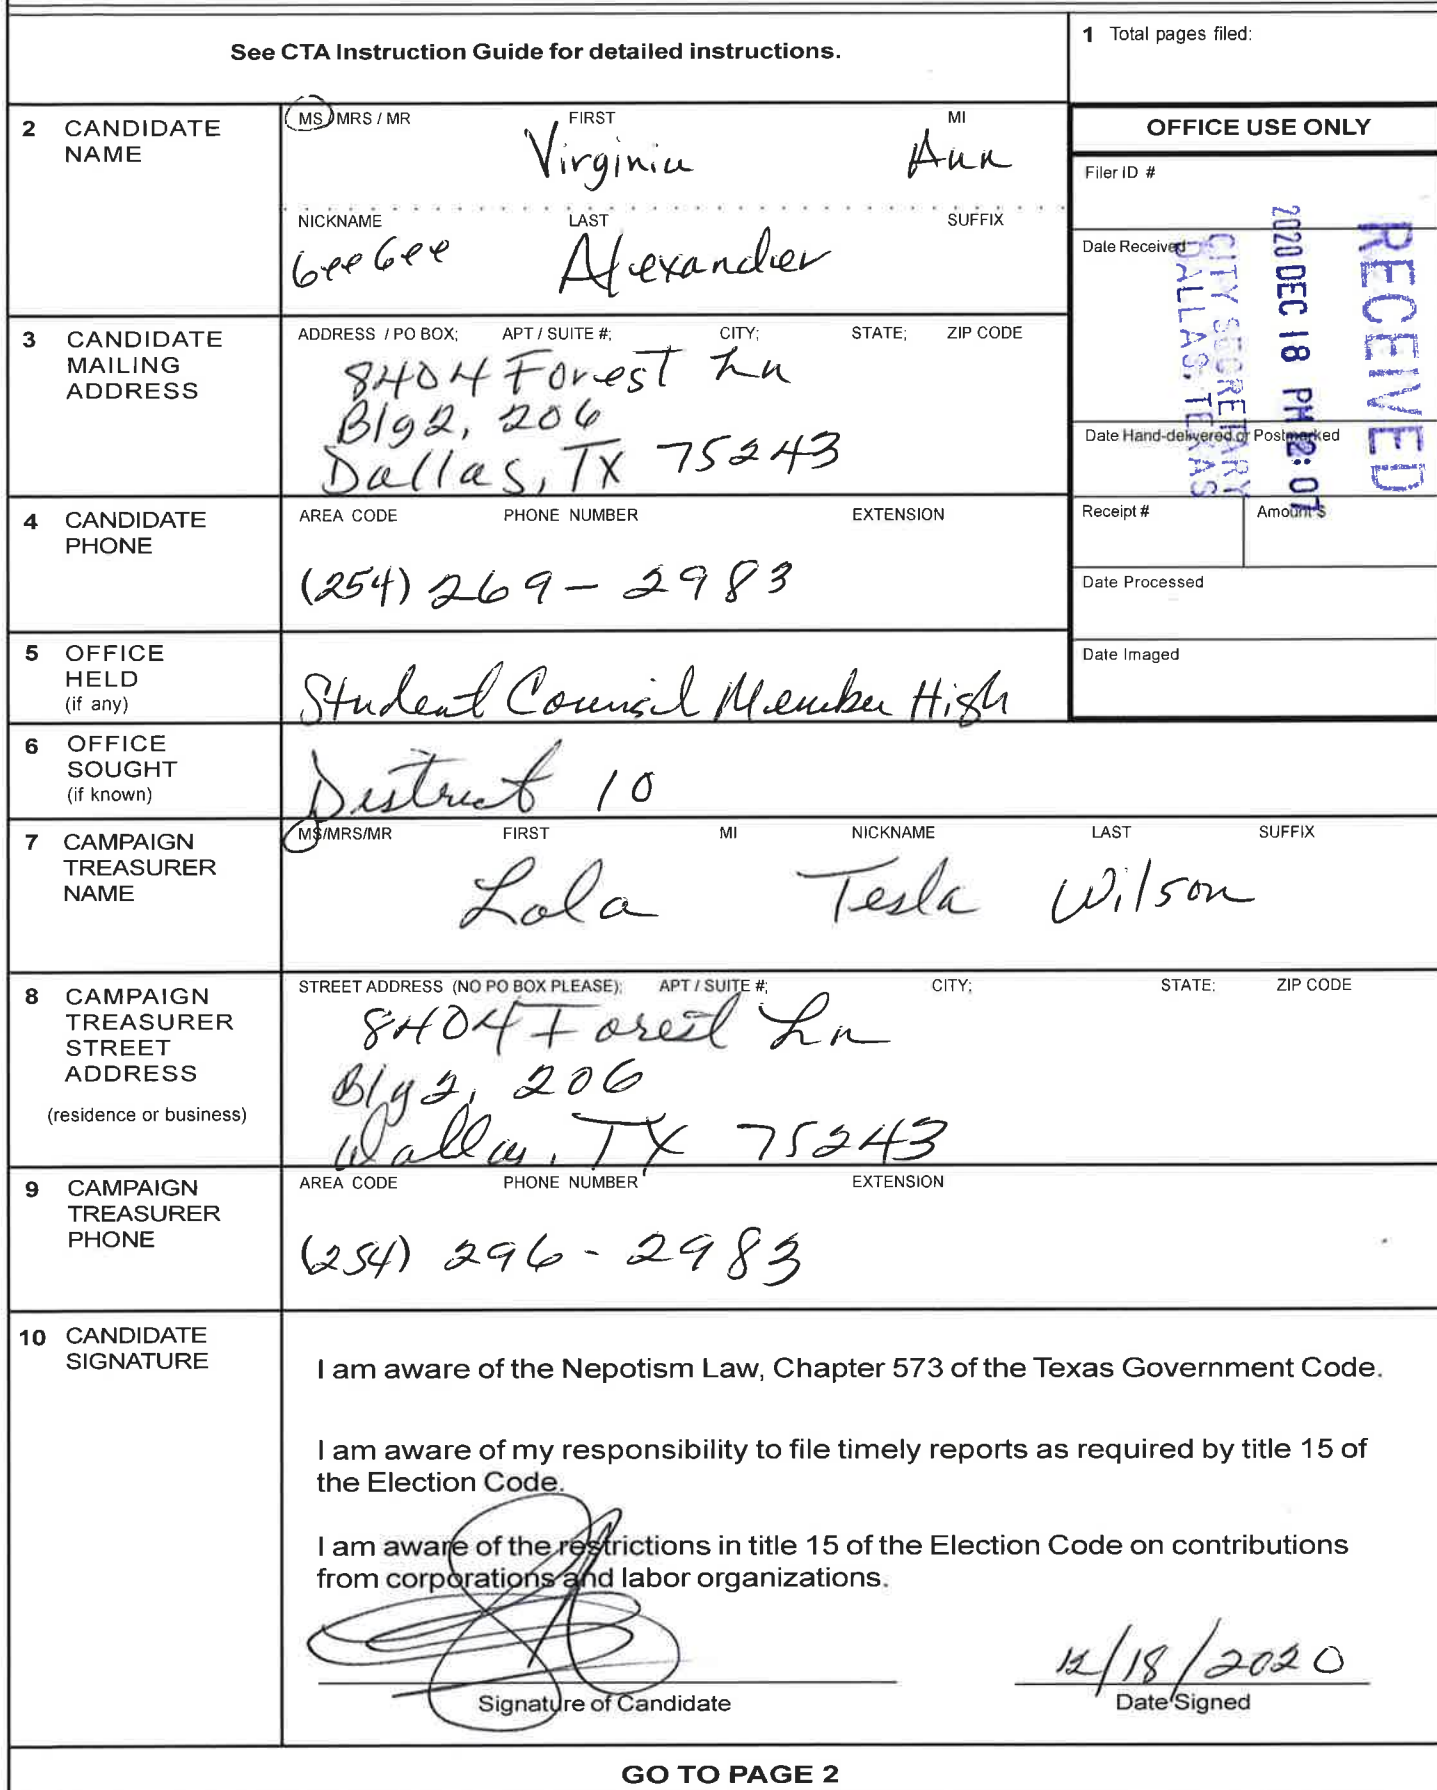 See CTA Instruction Guide for detailed instructions.
1 Total pages filed:
2 CANDIDATE NAME
MS / MRS / MR FIRST MI
Virginia Ann
NICKNAME LAST SUFFIX
GeeGee Alexander
OFFICE USE ONLY
Filer ID #
Date Received
RECEIVED
2020 DEC 18 PM 12:07
CITY SECRETARY
DALLAS, TEXAS
Date Hand-delivered or Postmarked
Receipt # Amount $
Date Processed
Date Imaged
3 CANDIDATE MAILING ADDRESS
ADDRESS / PO BOX; APT / SUITE #; CITY; STATE; ZIP CODE
8404 Forest Ln
Blg2, 206
Dallas, TX 75243
4 CANDIDATE PHONE
AREA CODE PHONE NUMBER EXTENSION
(254) 269-2983
5 OFFICE HELD (if any)
Student Council Member High
6 OFFICE SOUGHT (if known)
District 10
7 CAMPAIGN TREASURER NAME
MS/MRS/MR FIRST MI NICKNAME LAST SUFFIX
Lola Tesla Wilson
8 CAMPAIGN TREASURER STREET ADDRESS
(residence or business)
STREET ADDRESS (NO PO BOX PLEASE); APT / SUITE #; CITY; STATE; ZIP CODE
8404 Forest Ln
Blg2, 206
Dallas, TX 75243
9 CAMPAIGN TREASURER PHONE
AREA CODE PHONE NUMBER EXTENSION
(254) 296-2983
10 CANDIDATE SIGNATURE
I am aware of the Nepotism Law, Chapter 573 of the Texas Government Code.
I am aware of my responsibility to file timely reports as required by title 15 of
the Election Code.
I am aware of the restrictions in title 15 of the Election Code on contributions
from corporations and labor organizations.
12/18/2020
Signature of Candidate Date Signed
GO TO PAGE 2